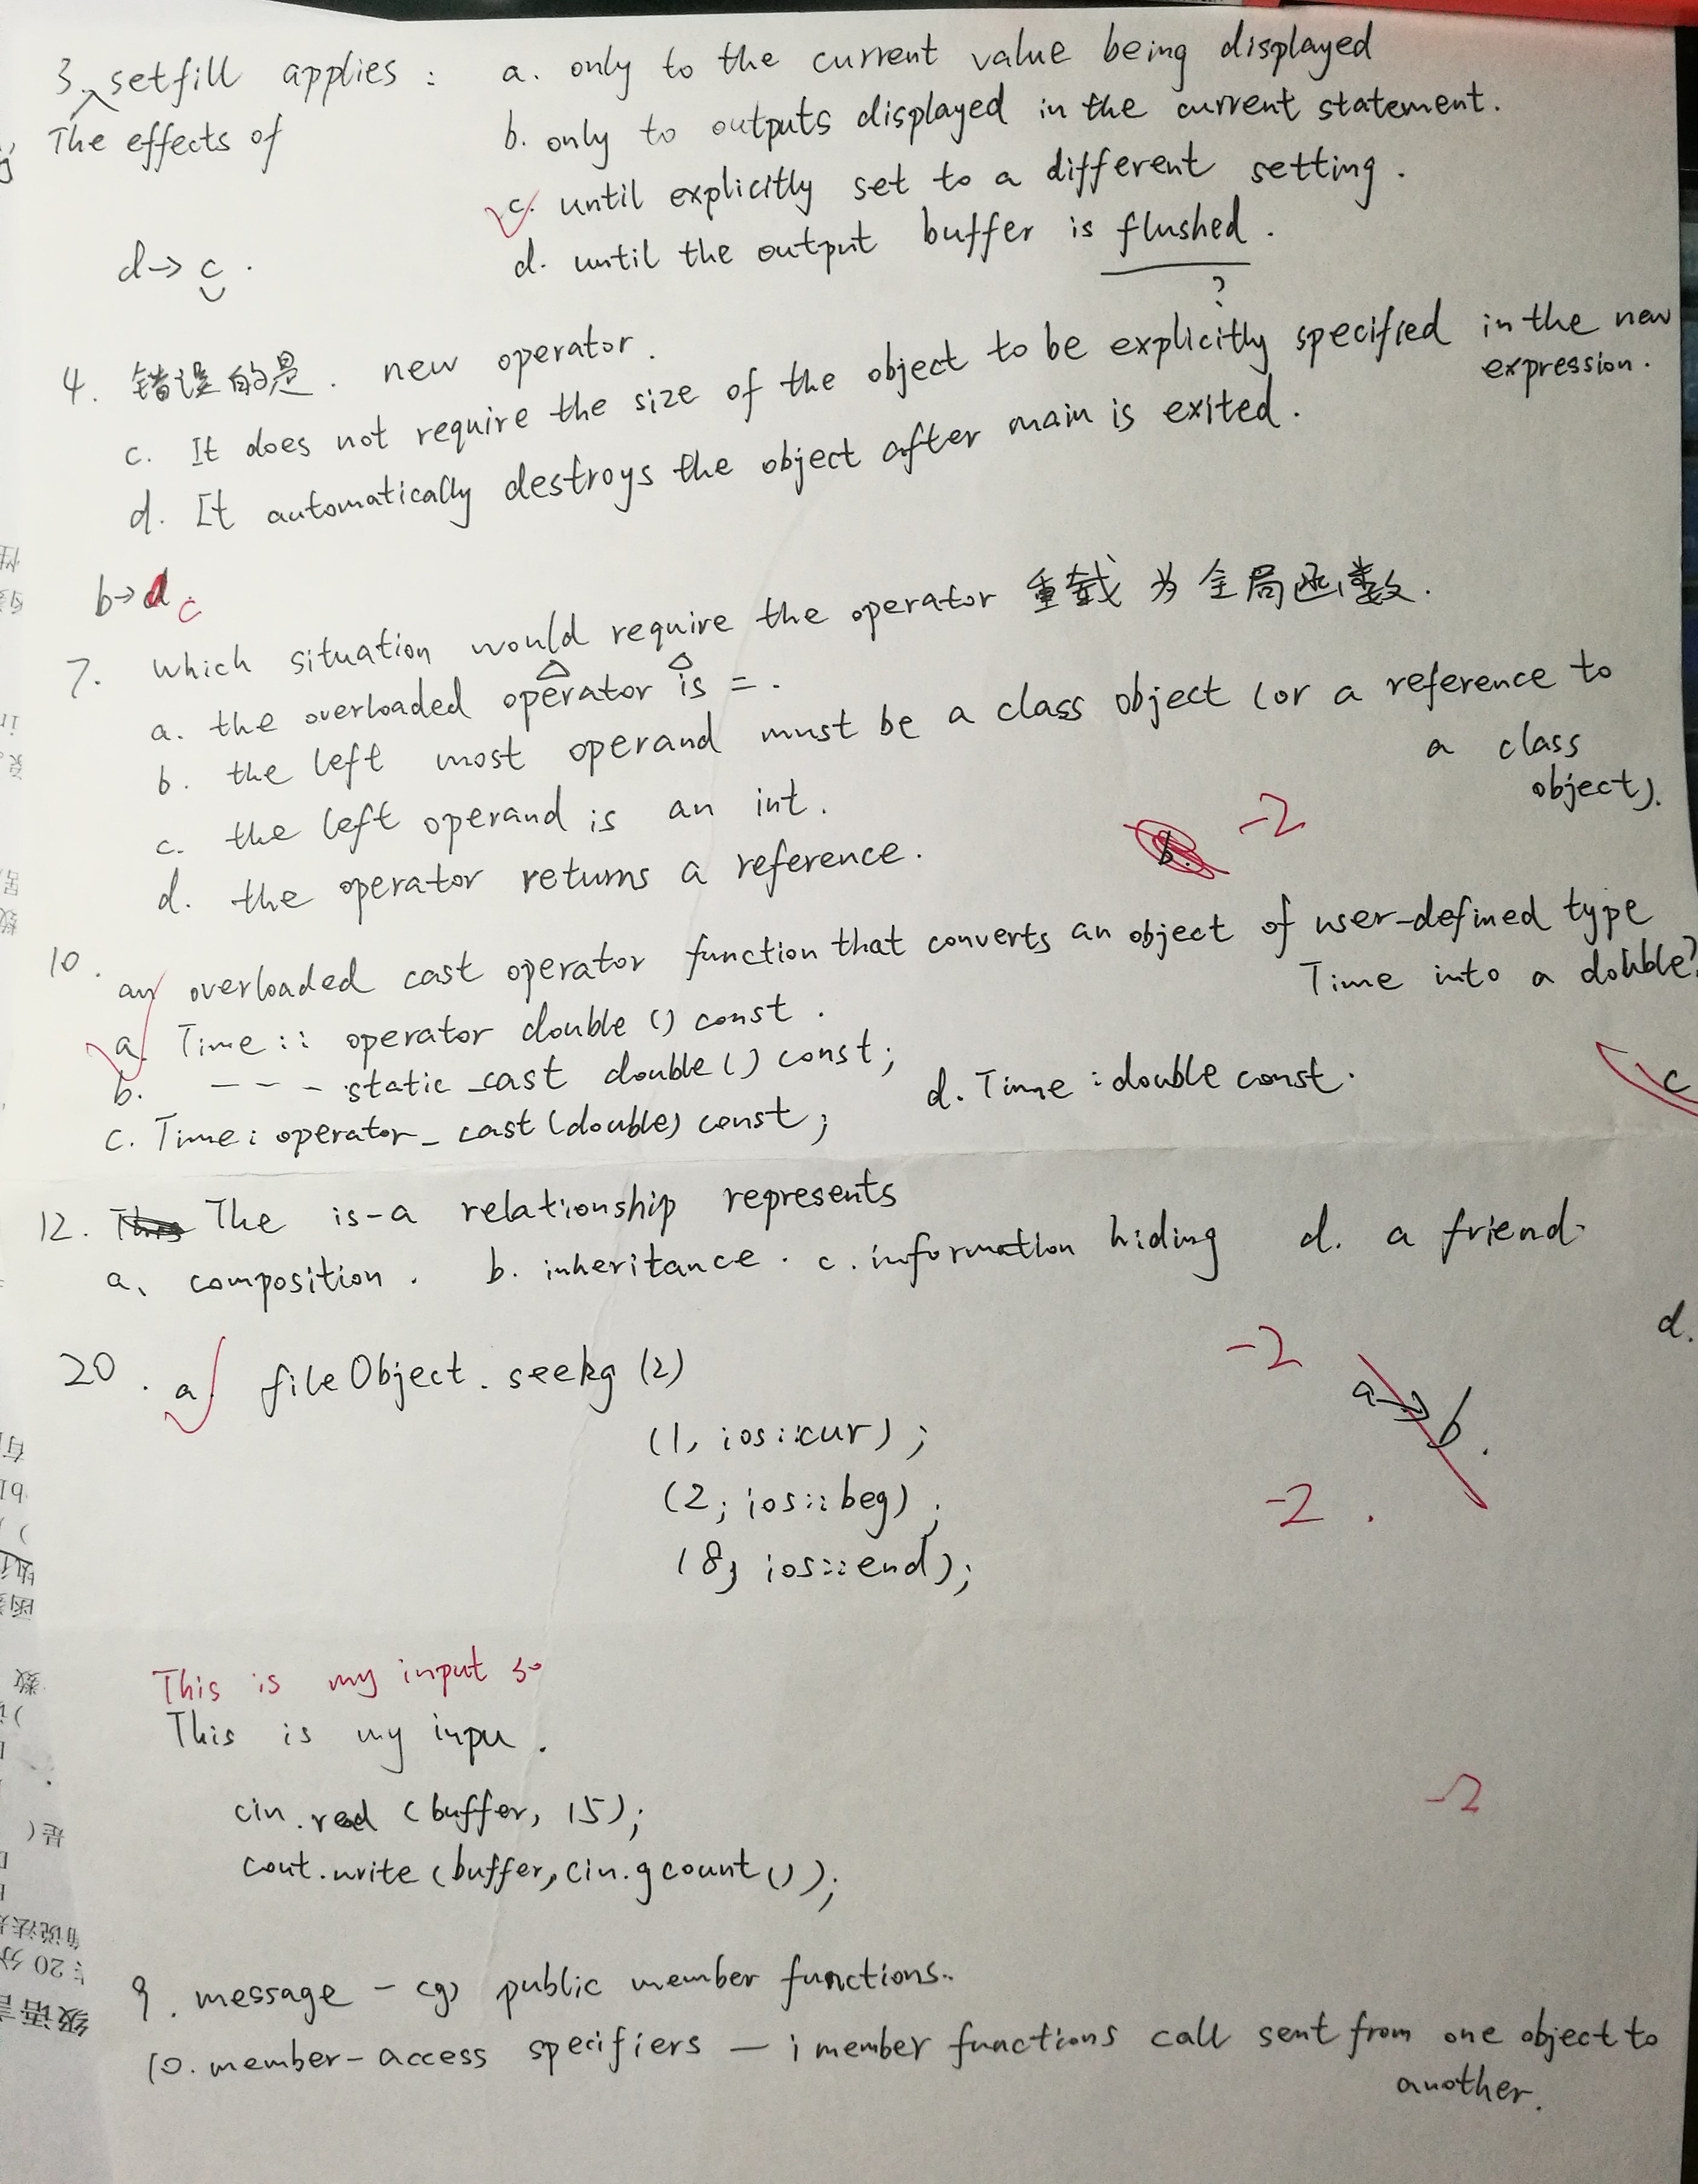 3. setfill applies : a. only to the current value being displayed
The effects of
b. only to outputs displayed in the current statement.
c. until explicitly set to a different setting.
d. until the output buffer is flushed.
?
d→c.
4. 错误的是. new operator.
c. It does not require the size of the object to be explicitly specified in the new
expression.
d. It automatically destroys the object after main is exited.
b→d c
7. which situation would require the operator 重载 为 全局函数.
a. the overloaded operator is =.
b. the left most operand must be a class object (or a reference to
a class
object).
c. the left operand is an int.
d. the operator returns a reference.
b. -2
10. an overloaded cast operator function that converts an object of user-defined type
Time into a double?
a. Time:: operator double () const.
b. --- static_cast double() const;
c. Time: operator_cast (double) const;
d. Time : double const.
c
12. The is-a relationship represents
a、composition. b. inheritance. c. information hiding d. a friend.
d.
20. a. fileObject. seekg (2)
-2
a→b.
(1, ios::cur);
(2; ios::beg);
-2.
(8, ios::end);
This is my input so
This is my inpu.
cin.read (buffer, 15);
-2
cout.write (buffer, cin.gcount());
9. message - cg) public member functions..
10. member-access specifiers — i member functions call sent from one object to
another.
有
b1
数
是(
20 分
级语言